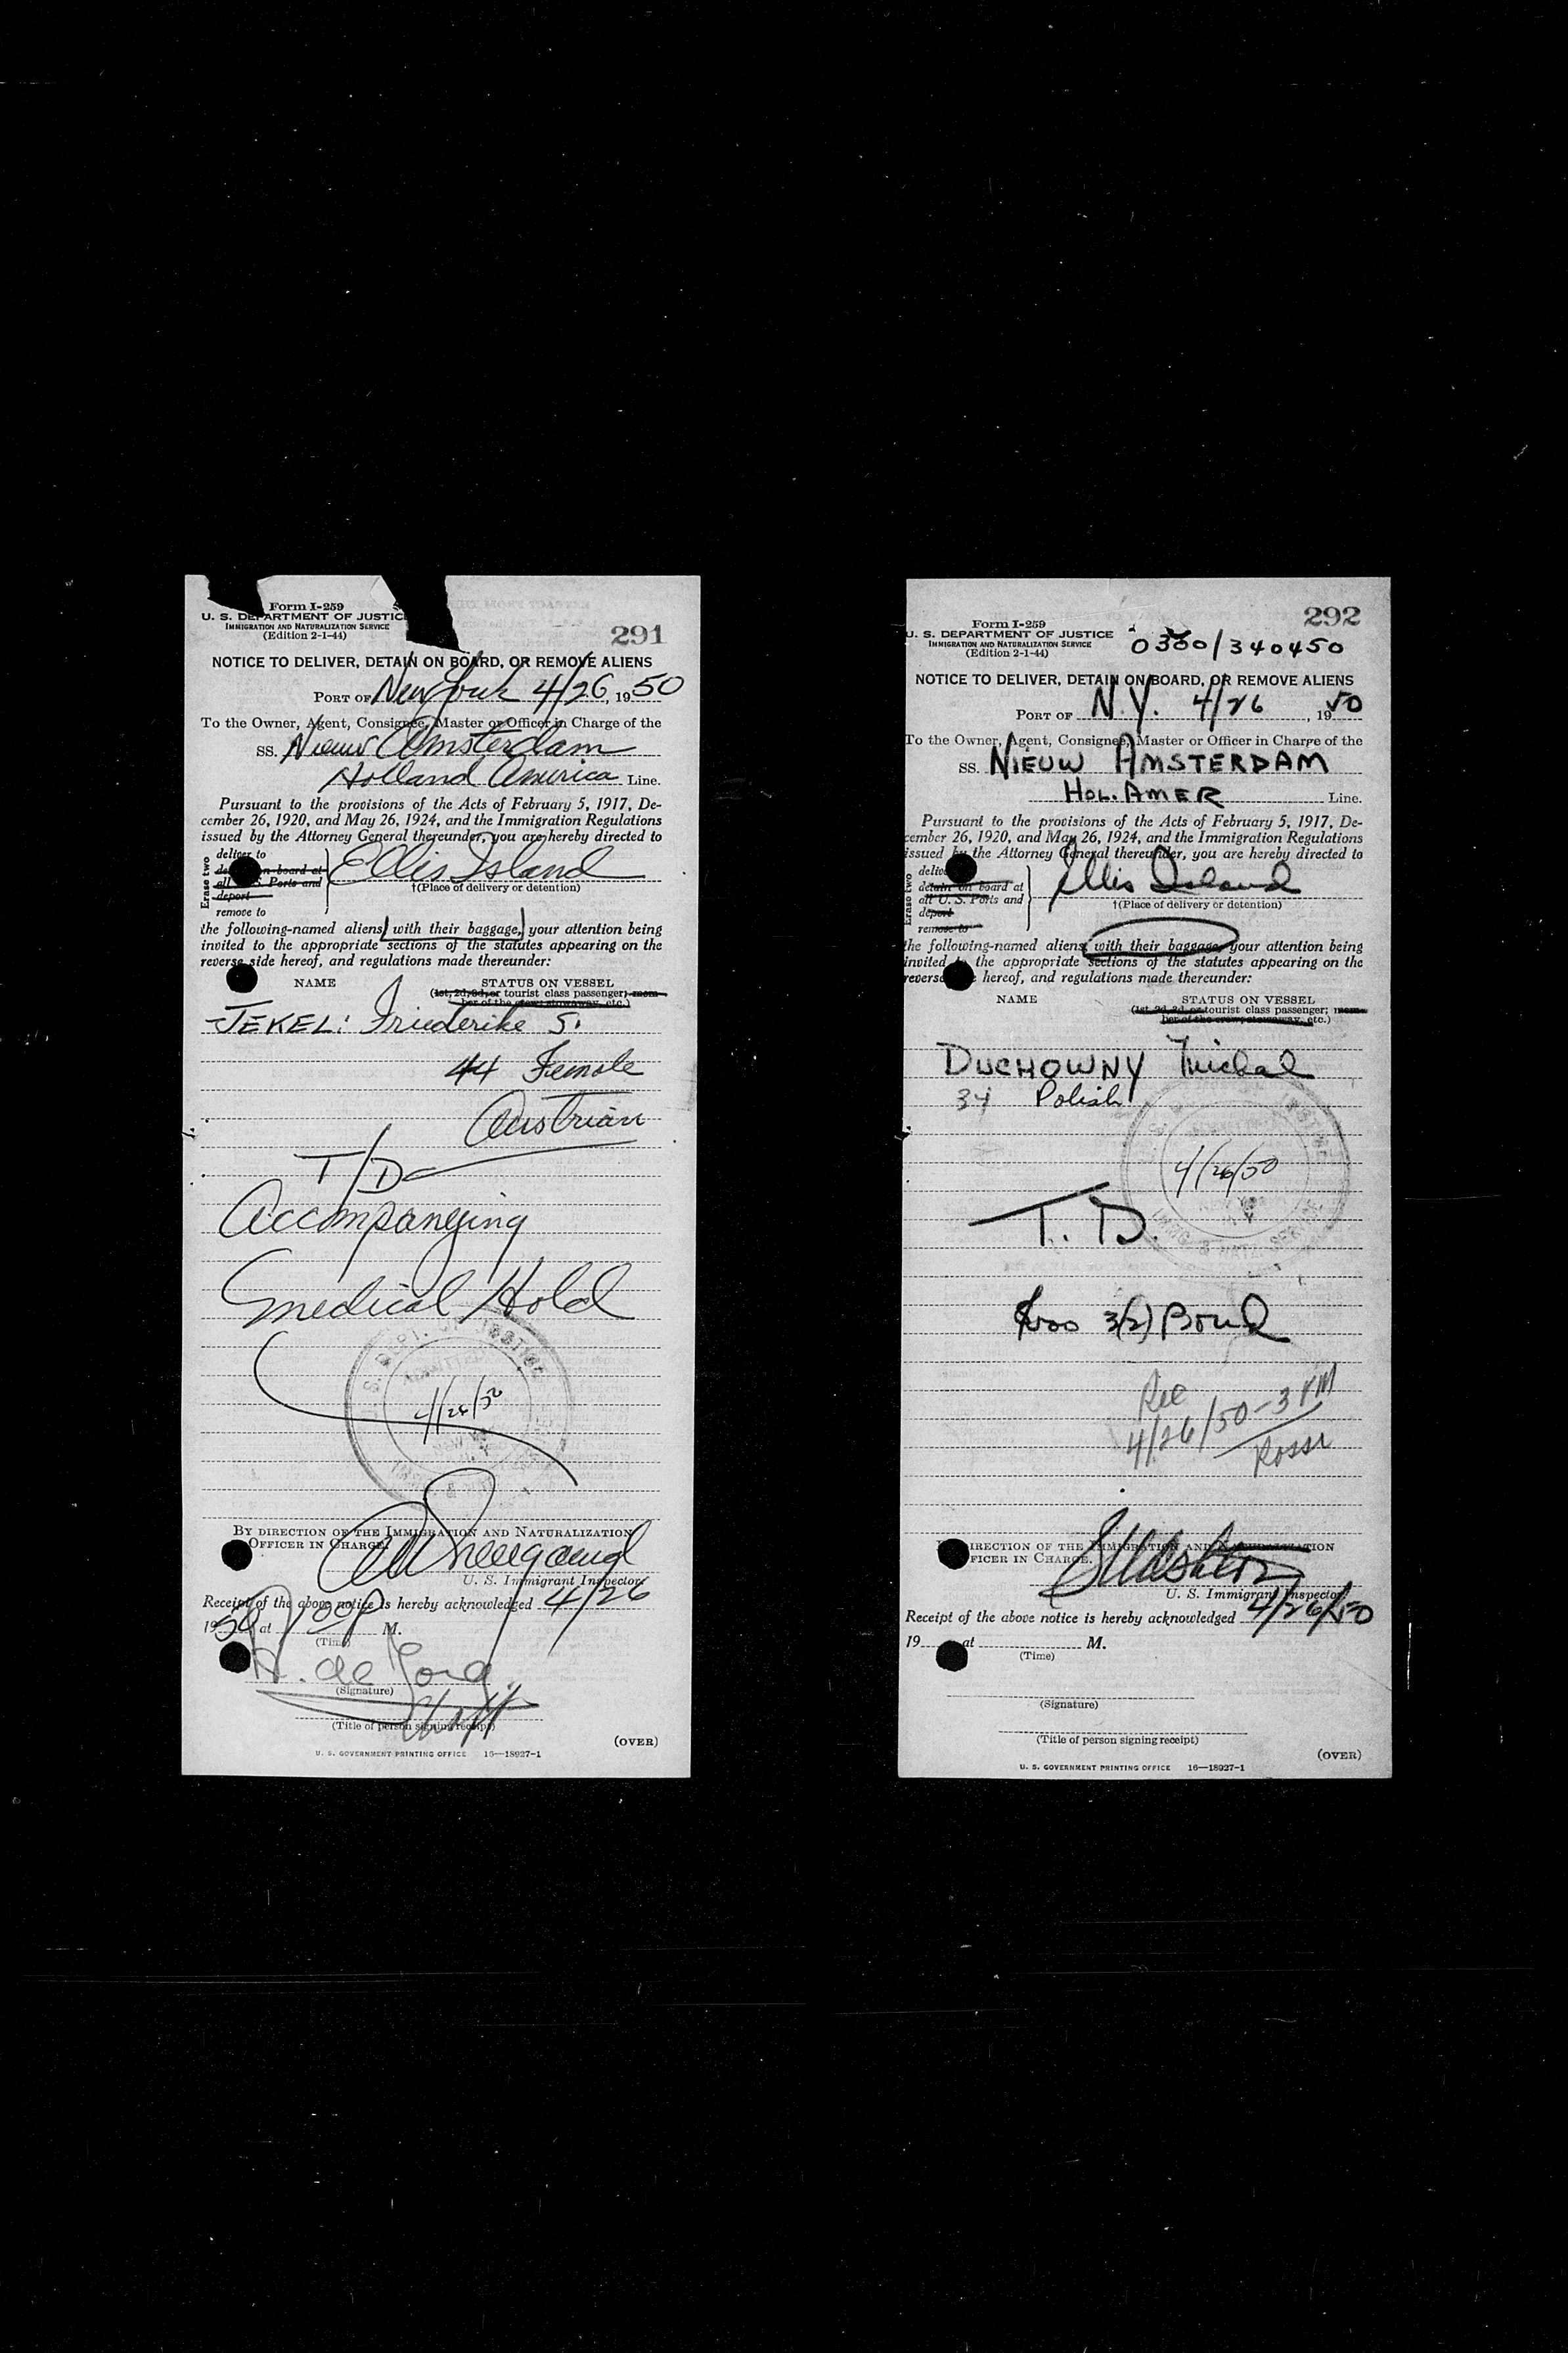 Form I-259
U. S. DEPARTMENT OF JUSTICE
IMMIGRATION AND NATURALIZATION SERVICE
(Edition 2-1-44)
291
NOTICE TO DELIVER, DETAIN ON BOARD, OR REMOVE ALIENS
PORT OF New York 4/26, 1950
To the Owner, Agent, Consignee, Master or Officer in Charge of the
SS. Nieuw Amsterdam
Holland America Line.
Pursuant to the provisions of the Acts of February 5, 1917, De-
cember 26, 1920, and May 26, 1924, and the Immigration Regulations
issued by the Attorney General thereunder, you are hereby directed to
Erase two
deliver to
on board at
all U. S. Ports and
deport
remove to
Ellis Island
†(Place of delivery or detention)
the following-named aliens, with their baggage, your attention being
invited to the appropriate sections of the statutes appearing on the
reverse side hereof, and regulations made thereunder:
NAME STATUS ON VESSEL
(1st, 2d, 3d, or tourist class passenger; mem-
ber of the crew, stowaway, etc.)
JEKEL: Friederike S.
44 Female
Austrian
T/D
Accompanying
Medical Hold
4/26/50
BY DIRECTION OF THE IMMIGRATION AND NATURALIZATION
OFFICER IN CHARGE.
U. S. Immigrant Inspector
Receipt of the above notice is hereby acknowledged 4/26
1950 at M.
(Time)
(Signature)
(Title of person signing receipt)
(OVER)
U. S. GOVERNMENT PRINTING OFFICE 16—18927-1
Form I-259
U. S. DEPARTMENT OF JUSTICE
IMMIGRATION AND NATURALIZATION SERVICE
(Edition 2-1-44)
292
0300/340450
NOTICE TO DELIVER, DETAIN ON BOARD, OR REMOVE ALIENS
PORT OF N.Y. 4/26, 1950
To the Owner, Agent, Consignee, Master or Officer in Charge of the
SS. NIEUW AMSTERDAM
HOL. AMER Line.
Pursuant to the provisions of the Acts of February 5, 1917, De-
cember 26, 1920, and May 26, 1924, and the Immigration Regulations
issued by the Attorney General thereunder, you are hereby directed to
Erase two
detain on board at
all U. S. Ports and
deport
remove to
Ellis Island
†(Place of delivery or detention)
the following-named aliens, with their baggage, your attention being
invited to the appropriate sections of the statutes appearing on the
reverse hereof, and regulations made thereunder:
NAME STATUS ON VESSEL
(1st, 2d, 3d, or tourist class passenger; mem-
ber of the crew, stowaway, etc.)
DUCHOWNY Michal
34 Polish
4/26/50
T. D.
3(2) Bond
Rec
4/26/50-3 PM
Rossi
DIRECTION OF THE IMMIGRATION AND NATURALIZATION
OFFICER IN CHARGE.
U. S. Immigrant Inspector.
Receipt of the above notice is hereby acknowledged 4/26/50
19 at M.
(Time)
(Signature)
(Title of person signing receipt)
(OVER)
U. S. GOVERNMENT PRINTING OFFICE 16—18927-1